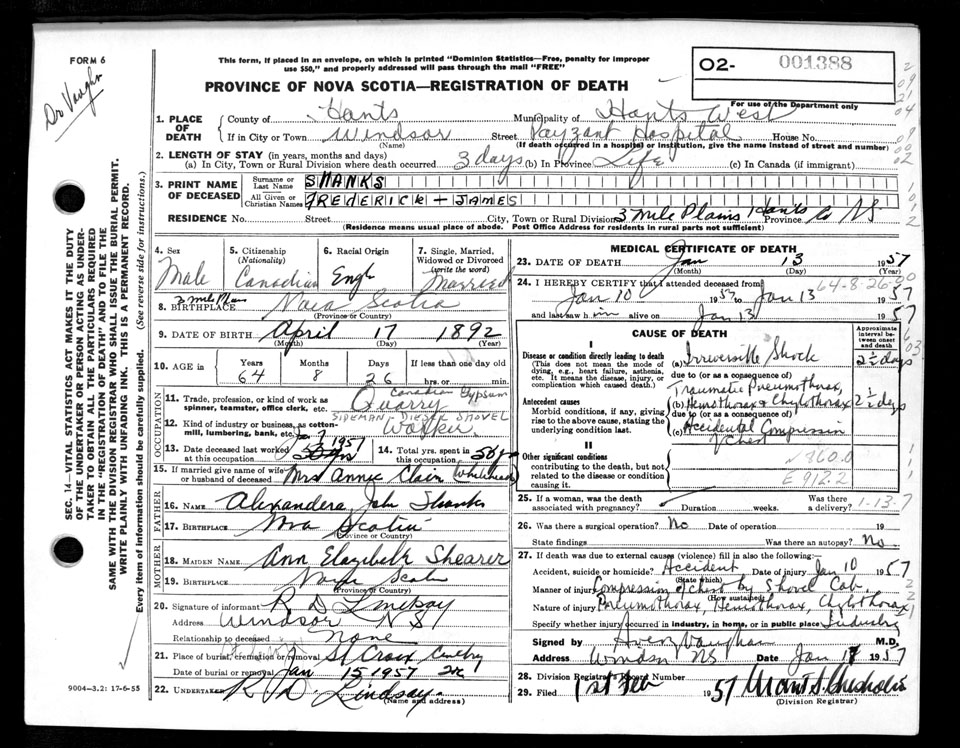 FORM 6
Dr Vaughn
This form, if placed in an envelope, on which is printed "Dominion Statistics—Free, penalty for improper
use $50," and properly addressed will pass through the mail "FREE"
PROVINCE OF NOVA SCOTIA—REGISTRATION OF DEATH
02- 001388
For use of the Department only
1. PLACE OF DEATH
County of Hants Municipality of Hants West
If in City or Town Windsor Street Payzant Hospital House No.
(Name) (If death occurred in a hospital or institution, give the name instead of street and number)
2. LENGTH OF STAY (in years, months and days)
(a) In City, Town or Rural Division where death occurred 3 days (b) In Province Life (c) In Canada (if immigrant)
3. PRINT NAME OF DECEASED
Surname or Last Name SHANKS
All Given or Christian Names FREDERICK - JAMES
RESIDENCE No. Street City, Town or Rural Division 3 Mile Plains Hants Co Province NS
(Residence means usual place of abode. Post Office Address for residents in rural parts not sufficient)
4. Sex Male
5. Citizenship (Nationality) Canadian
6. Racial Origin Engl
7. Single, Married, Widowed or Divorced (write the word) Married
8. BIRTHPLACE 3 mile Plains Nova Scotia
(Province or Country)
9. DATE OF BIRTH April 17 1892
(Month) (Day) (Year)
10. AGE in Years Months Days If less than one day old
64 8 26 hrs. or min.
OCCUPATION
11. Trade, profession, or kind of work as spinner, teamster, office clerk, etc. Quarry Canadian Gypsum
SIDEMAN - DIESEL SHOVEL
12. Kind of industry or business, as cotton-mill, lumbering, bank, etc. Worker
13. Date deceased last worked at this occupation 1957
14. Total yrs. spent in this occupation
15. If married give name of wife or husband of deceased Mrs Annie Clair (Whitehead)
FATHER
16. NAME Alexandera John Shanks
17. BIRTHPLACE Nova Scotia
(Province or Country)
MOTHER
18. MAIDEN NAME Ann Elazibeth Shearer
19. BIRTHPLACE Nova Scotia
(Province or Country)
20. Signature of informant R D Lindsay
Address Windsor NS
Relationship to deceased None
21. Place of burial, cremation or removal St Croix
Date of burial or removal Jan 15, 1957
22. UNDERTAKER R. D. Lindsay
(Name and address)
MEDICAL CERTIFICATE OF DEATH
23. DATE OF DEATH Jan 13 1957
(Month) (Day) (Year)
64-8-26-
24. I HEREBY CERTIFY that I attended deceased from
Jan 10 1957 to Jan 13 1957
and last saw him alive on Jan 13 1957
CAUSE OF DEATH
Approximate interval between onset and death
I
Disease or condition directly leading to death
(This does not mean the mode of dying, e.g., heart failure, asthenia, etc. It means the disease, injury, or complication which caused death.)
(a) Irreversible Shock 2½ days
due to (or as a consequence of)
Antecedent causes
Morbid conditions, if any, giving rise to the above cause, stating the underlying condition last.
(b) Traumatic Pneumothorax, Hemothorax & Chylothorax 2½ days
due to (or as a consequence of)
(c) Accidental Compression of Chest
II
Other significant conditions
contributing to the death, but not related to the disease or condition causing it.
860.0
E 912.2
25. If a woman, was the death associated with pregnancy? Duration weeks. Was there a delivery?
1-13-7
26. Was there a surgical operation? No Date of operation 19
State findings Was there an autopsy? No
27. If death was due to external causes (violence) fill in also the following:—
Accident, suicide or homicide? Accident Date of injury Jan 10 1957
(State which)
Manner of injury Compression of chest by Shovel Cab.
(How sustained)
Nature of injury Pneumothorax, Hemothorax, Chylothorax
Specify whether injury occurred in industry, in home, or in public place Industry
Signed by Vaughan M.D.
Address Windsor NS Date Jan 1957
28. Division Registrar's Record Number
29. Filed 1st Feb 1957 Grant S. Chisholm
(Division Registrar)
SEC. 14—VITAL STATISTICS ACT MAKES IT THE DUTY
OF THE UNDERTAKER OR PERSON ACTING AS UNDER-
TAKER TO OBTAIN ALL THE PARTICULARS REQUIRED
IN THE "REGISTRATION OF DEATH" AND TO FILE THE
SAME WITH THE DIVISION REGISTRAR WHO SHALL ISSUE THE BURIAL PERMIT.
WRITE PLAINLY WITH UNFADING INK. THIS IS A PERMANENT RECORD.
Every item of information should be carefully supplied. (See reverse side for instructions.)
9004-3.2: 17-6-55